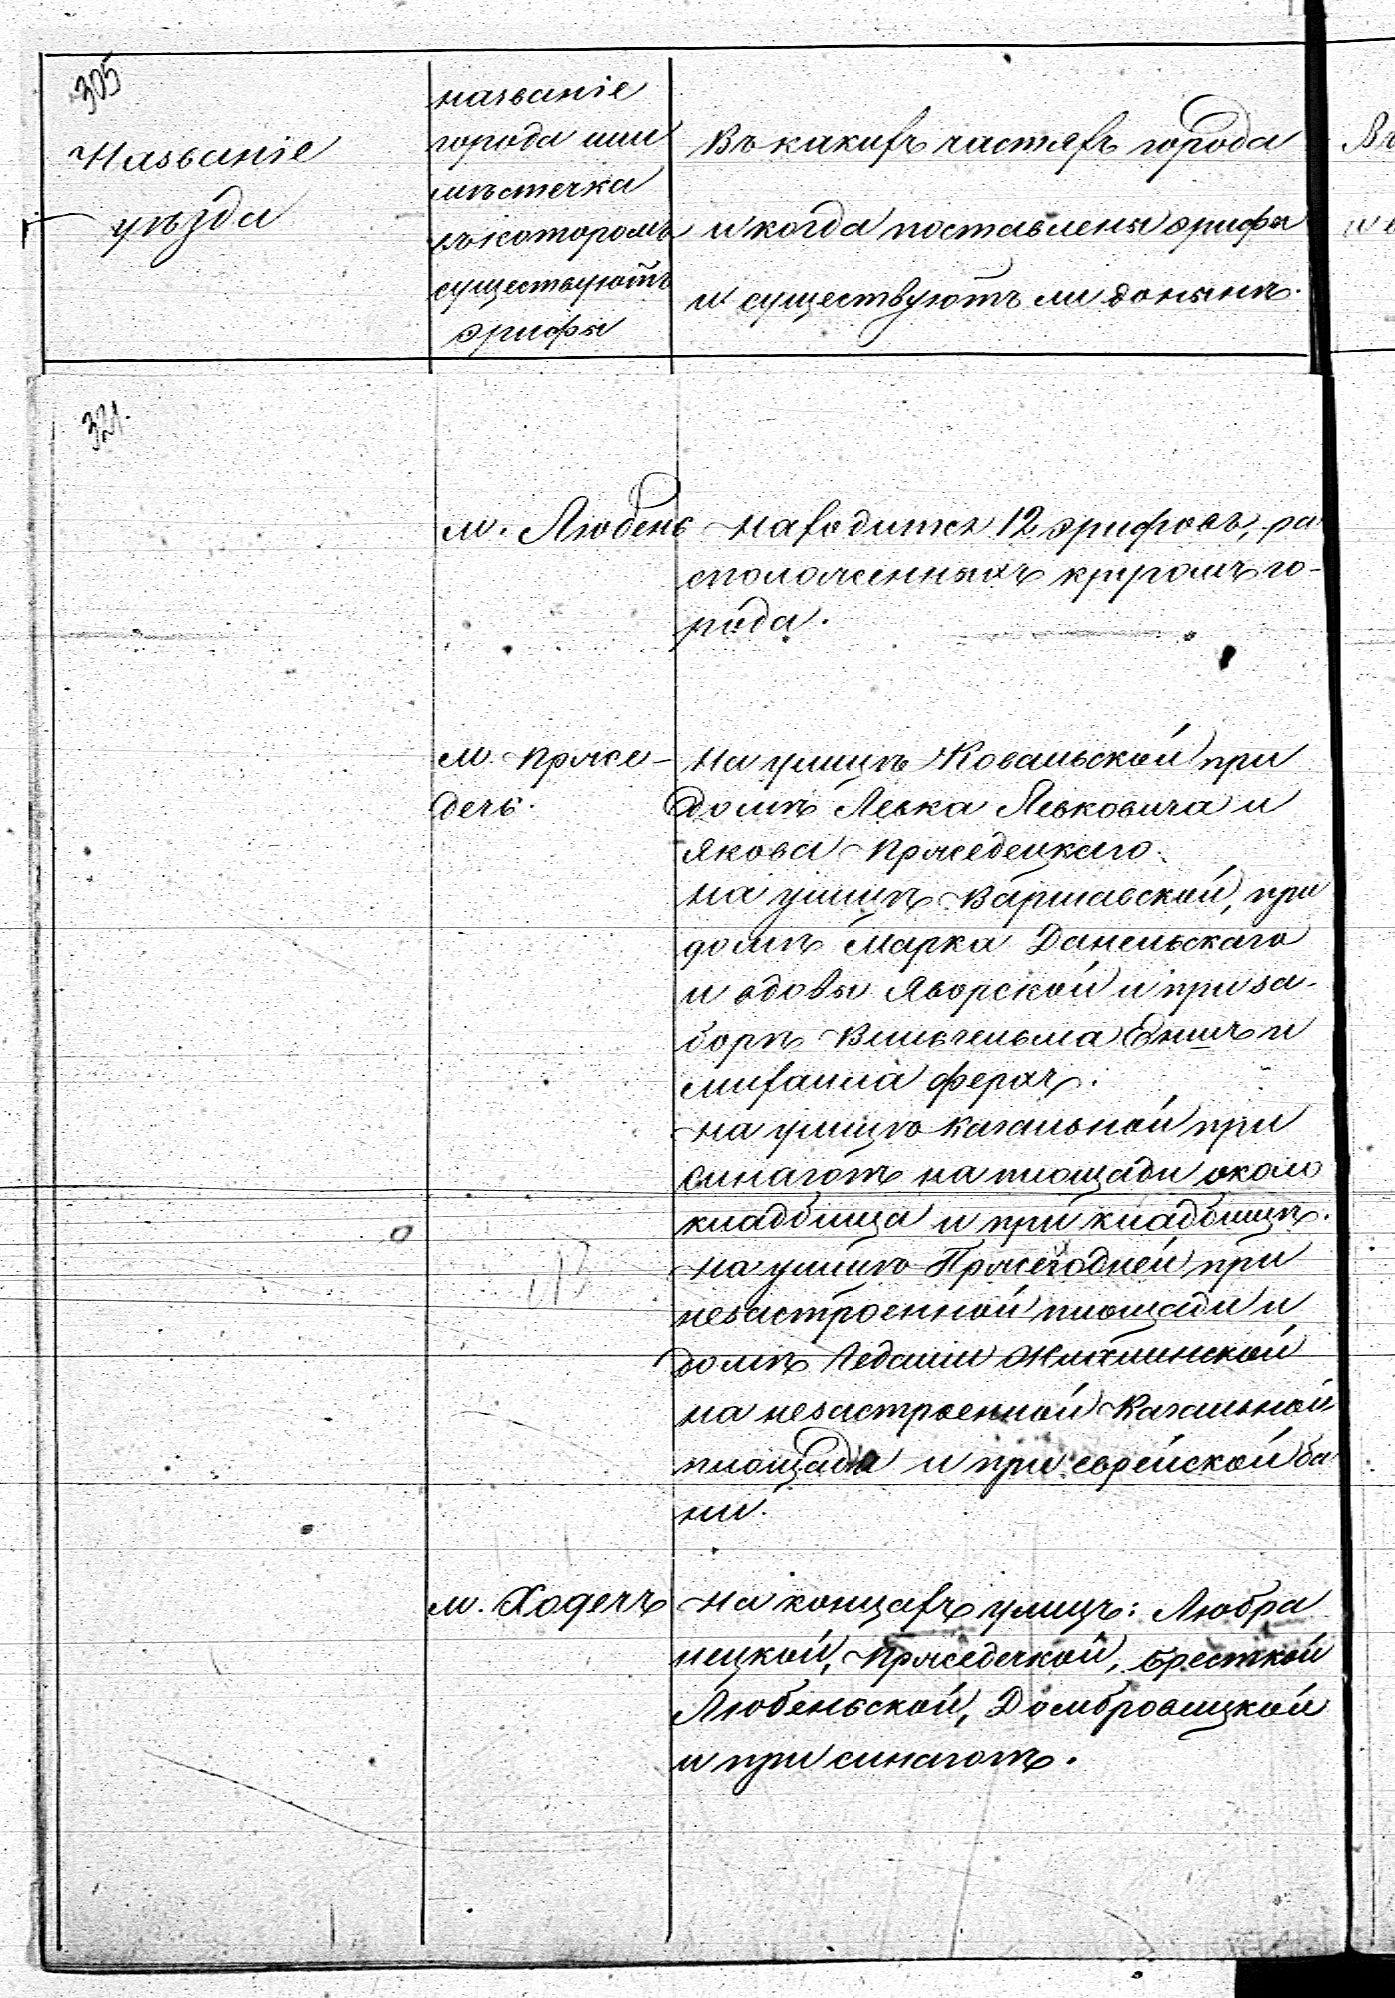 305
Названіе
уѣзда
названіе
города или
мѣстечка
въ которомъ
существуютъ
эрифы
Въ какихъ частяхъ города
и когда поставлены эрифы
и существуютъ ли донынѣ.
Въ
321.
м. Любень
находится 12 эрифовъ, ра
сположенныхъ кругомъ го-
рода.
м. Пржедечь.
На улицѣ Ковальской при
домѣ Левка Левковича и
Якова Пржедецкаго.
На улицѣ Варшавской, при
домѣ Марка Данельскаго
и вдовы Яворской и при за-
борѣ Вильгельма Еничъ и
Михаила Ферхъ.
На улицѣ Кагальной при
синагогѣ на площади около
кладбища и при кладбищѣ.
На улицѣ при
незастроенной площади и
домѣ Гедаліи
на незастроенной Кагальной
площади и при еврейской ба
ни.
м. Ходечъ
На концахъ улицъ: Любра
нецкой, Пржедечкой, Бресткой
Любеньской, Домбровицкой
и при синагогѣ.